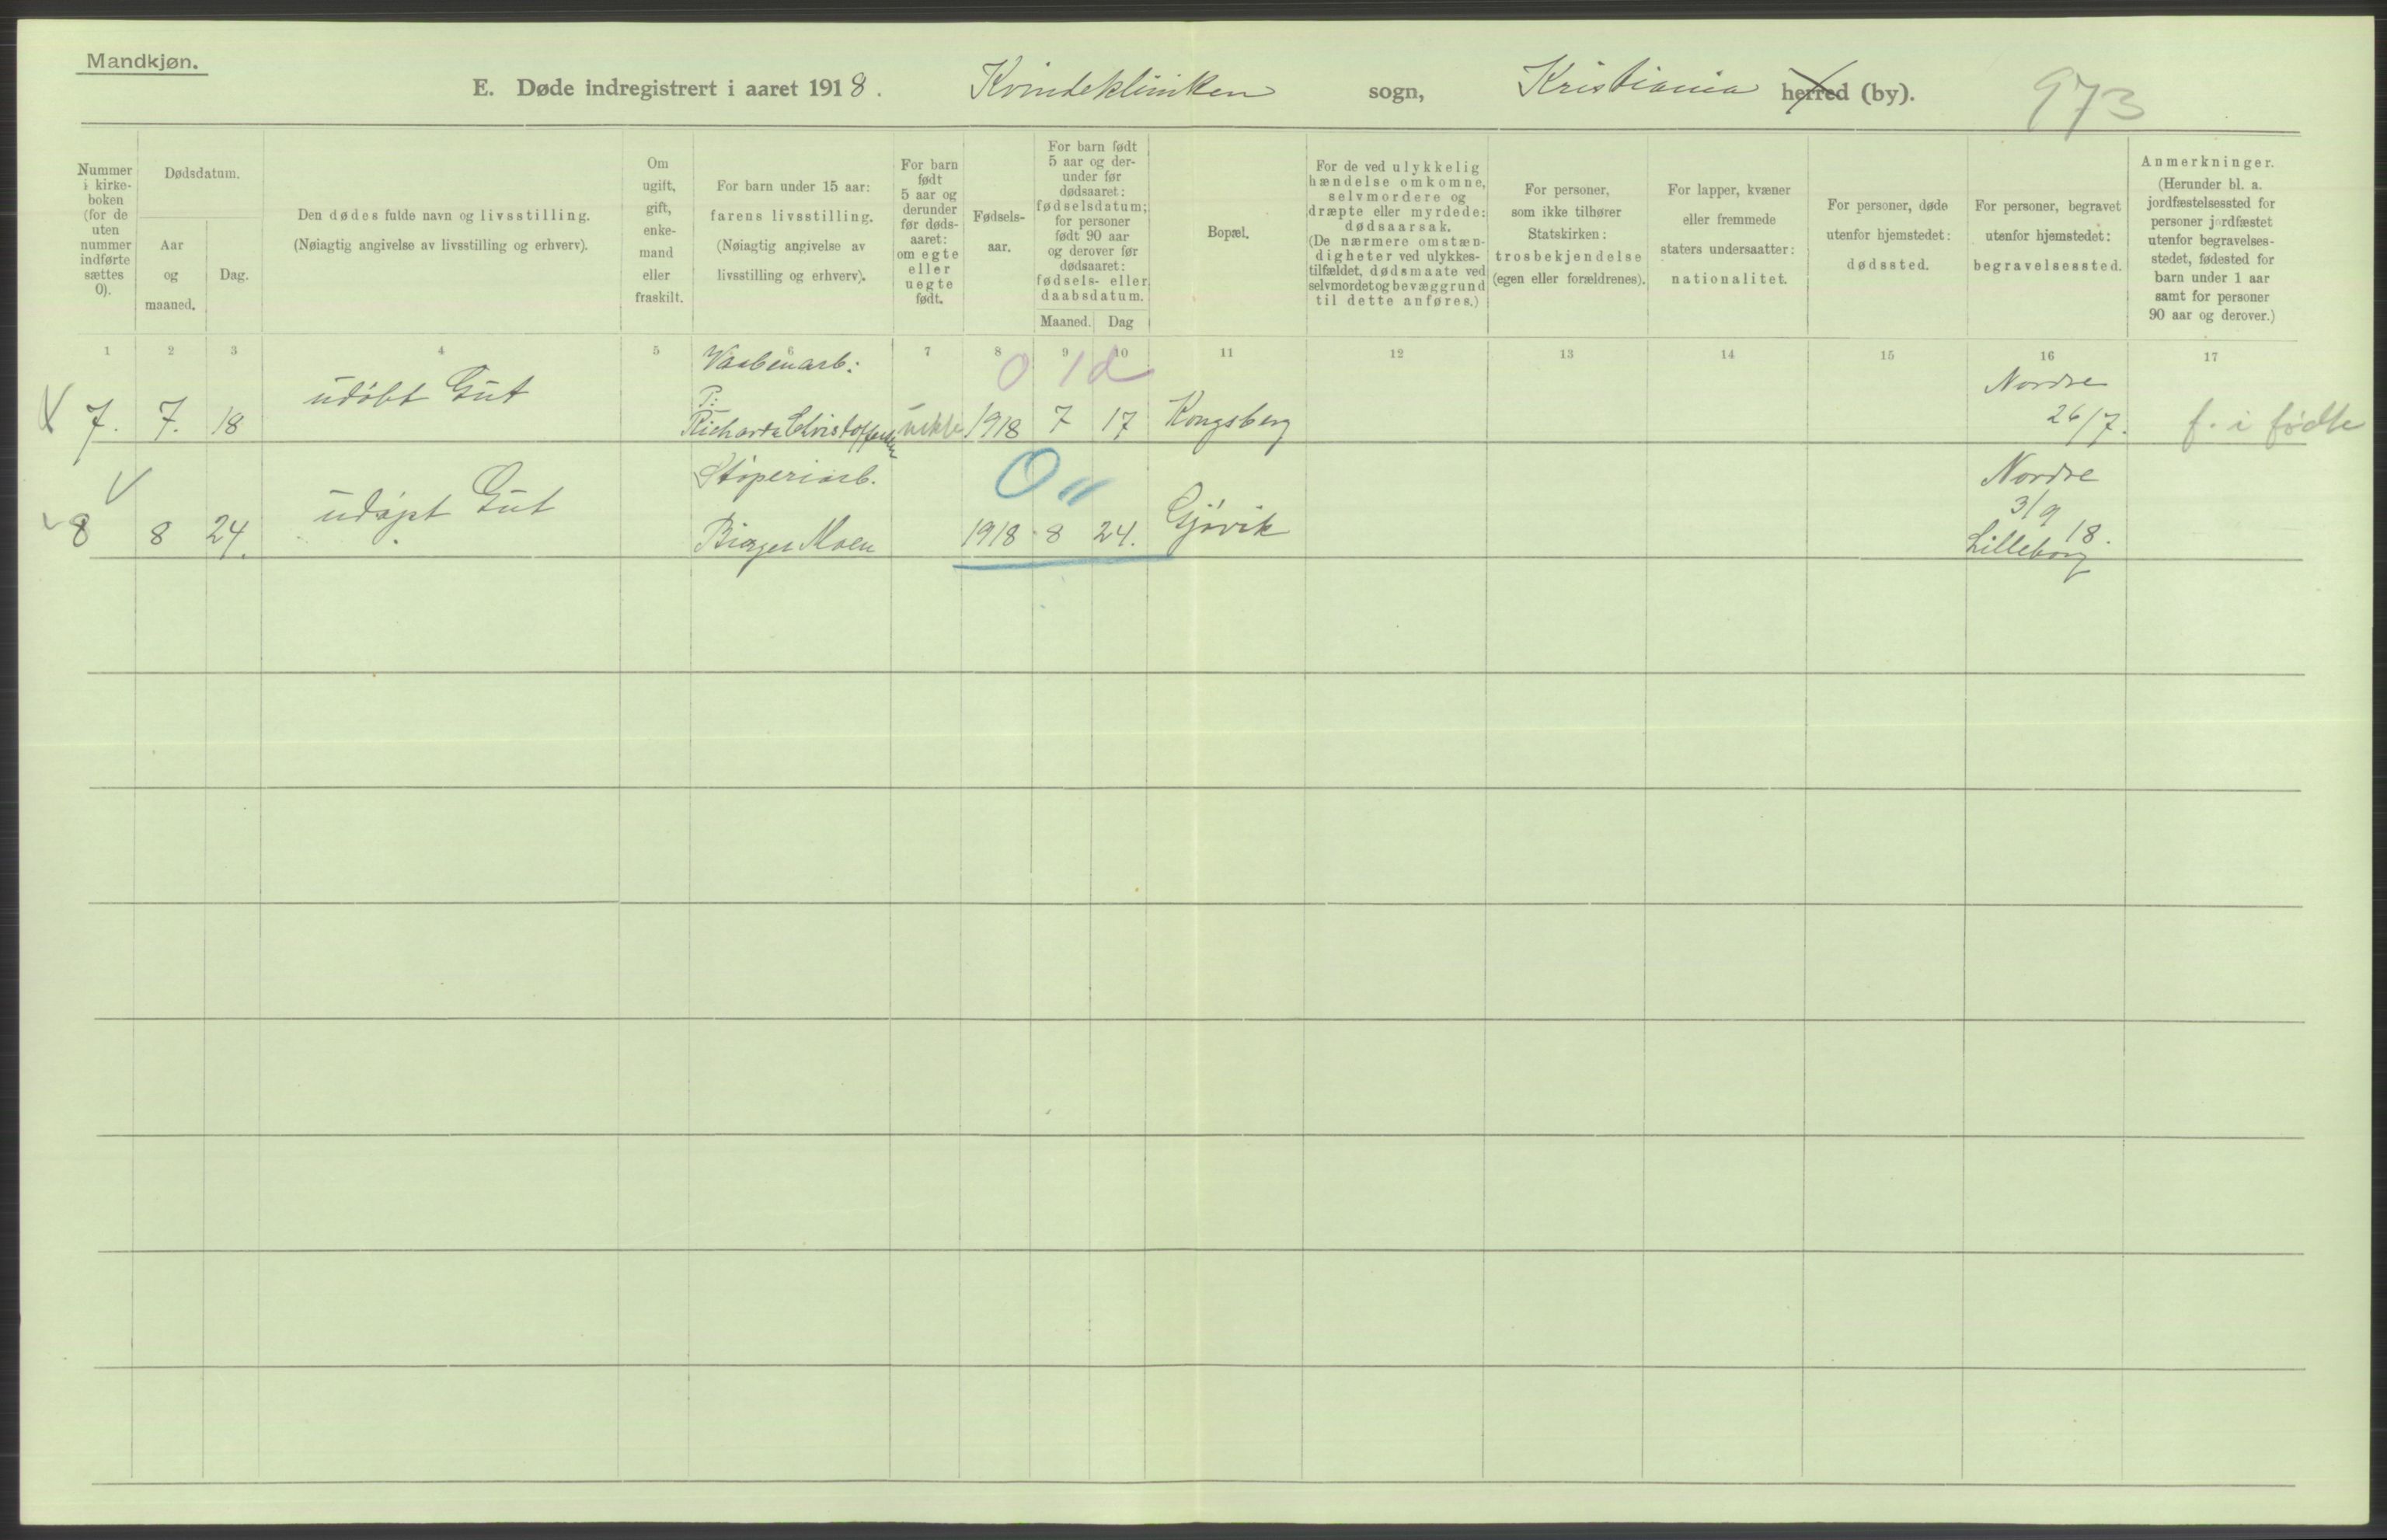 Mandkjøn.
E. Døde indregistrert i aaret 1918. Kvindekliniken sogn, Kristiania herred (by). 973
Nummer i kirke- boken (for de uten nummer indførte sættes 0).
Dødsdatum.
Aar og maaned.
Dag.
Den dødes fulde navn og livsstilling.
(Nøiagtig angivelse av livsstilling og erhverv).
Om ugift, gift, enke- mand eller fraskilt.
For barn under 15 aar:
farens livsstilling.
(Nøiagtig angivelse av
livsstilling og erhverv).
For barn født 5 aar og derunder før døds- aaret: om egte eller uegte født.
Fødsels- aar.
For barn født 5 aar og der- under før dødsaaret: fødselsdatum; for personer født 90 aar og derover før dødsaaret: fødsels- eller daabsdatum.
Maaned. Dag
Bopæl.
For de ved ulykkelig hændelse omkomne, selvmordere og dræpte eller myrdede: dødsaarsak. (De nærmere omstæn- digheter ved ulykkes- tilfældet, dødsmaate ved selvmordet og bevæggrund til dette anføres.)
For personer, som ikke tilhører Statskirken: trosbekjendelse (egen eller forældrenes).
For lapper, kvæner eller fremmede staters undersaatter: nationalitet.
For personer, døde utenfor hjemstedet: dødssted.
For personer, begravet utenfor hjemstedet: begravelsessted.
Anmerkninger. (Herunder bl. a. jordfæstelsessted for personer jordfæstet utenfor begravelses- stedet, fødested for barn under 1 aar samt for personer 90 aar og derover.)
1 2 3 4 5 6 7 8 9 10 11 12 13 14 15 16 17
Vaabenarb: 0 1d Nordre
7. 7. 18 udøbt Gut P: Richard Christoffersen uekte 1918 7 17 Kongsberg 26/7. f. i fødte
Støperiarb. 0 " Nordre
8 8 24. udøpt Gut Birger Moen 1918 8 24. Gjøvik 3/9 18.
Lilleborg